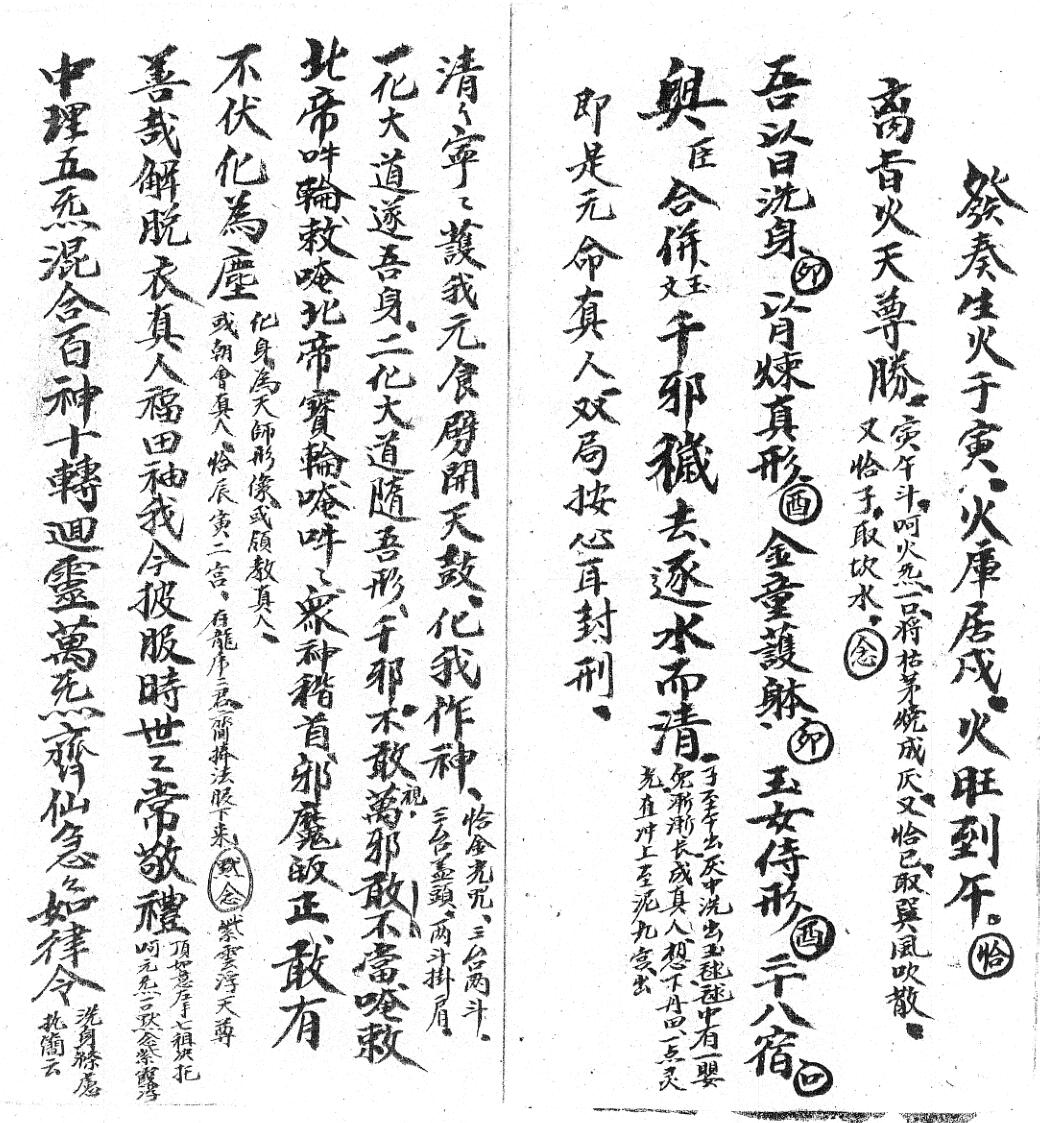 發奏生火于寅、火庫居戌、火旺到午。恰
离旨火天尊勝、寅午斗、呵火炁一口將枯茅燒成灰、又恰巳取巽風吹散、
又恰子取坎水、念
吾以日洗身卯以月煉真形酉金童護躰卯玉女侍形酉二十八宿
與臣合併玉文千邪穢去、逐水而清、子至午出灰中洗出玉毬毬中有一嬰
兒漸漸长成真人想下丹田一点灵
光直冲上至泥丸宮出
即是元命真人、双局按心耳封刑、
清〻寧〻護我元食劈開天鼓、化我作神、恰金光咒、三台两斗、
三台盖頭、两斗掛肩、
一化大道遂吾身、二化大道隨吾形、千邪不敢視萬邪敢不當、唵敕
北帝吽輪敕唵北帝寶輪唵吽〻衆神稽首、邪魔皈正敢有
不伏化為塵化身為天師形像、或領教真人、
或朝會真人、恰辰寅二宫、存龍虎二君一簡捧法服下来、或念紫雲浮天尊
善哉解脱衣真人福田袖我今披服時世〻常敬禮頂如意左手七祖訣托
呵元炁一口默念紫霞浮
中理五炁混合百神十轉迴靈萬炁齊仙急〻如律令洗身滌慮
执簡云